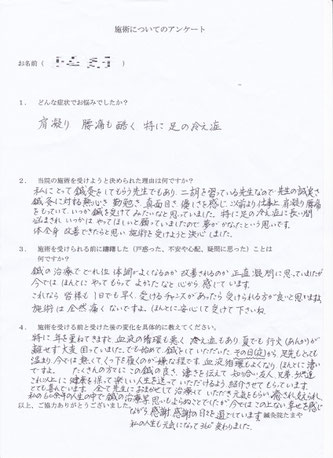 施術についてのアンケート
お名前（　　　　）
１．　どんな症状でお悩みでしたか？
肩凝り　腰痛も酷く　特に足の冷え症
２．　当院の施術を受けようと決められた理由は何ですか？
私にとって鍼灸をしてもらう先生でもあり、二胡を習っている先生なので、先生の誠実さ
鍼灸に対する熱心さ　勤勉さ　真面目さ　優しさを感じ、以前より仕事上　肩凝り腰痛
をもっていて、いつか鍼を受けてみたいなと思っていました。特に足の冷え症に長い間
悩まされ　いつかは　やってほしいと願っていましたので夢がかなったという思いです。
体全身　改善できたらと思い　施術を受けようと決心しました。
３．　施術を受けられる前に躊躇した（戸惑った、不安や心配、疑問に思った）ことは
何ですか？
鍼の治療でどれ位　体調がよくなるのか　改善されるのか　正直疑問に思っていましたが
今では　ほんとにやってもらって　よかったなと心から感じています
これなら　皆様も1日でも早く、受けるチャンスがあったら受けられる方が良いと思います
施術は全然痛くないですよ。ほんとに安心して受けて下さいね。
４．　施術を受ける前と受けた後の変化を具体的に教えてください。
特に耳を重ねてきますと　血液の循環も悪く　冷え症もあり夏でも行火(あんか)が
離せず大変困っていました。でも始めて鍼をしていただいた　その日(足)から
温まり、今では無くてくつ下を履くのが嫌な程です。血液循環もよくなり　ほんとに凄い
ですよ。たくさんの方にこの鍼の良さ、凄さを伝えて
これ以上に健康を保って楽しい人生を送っていただけるよう紹介させてもらっています
とても喜んでいます　全て先生におまかせして治療していただき
以上、ご協力ありがとうございました。
ながら感謝感謝の日々を過しています　鍼灸院たまや
私の人生も元気になってうれしく変わりました。